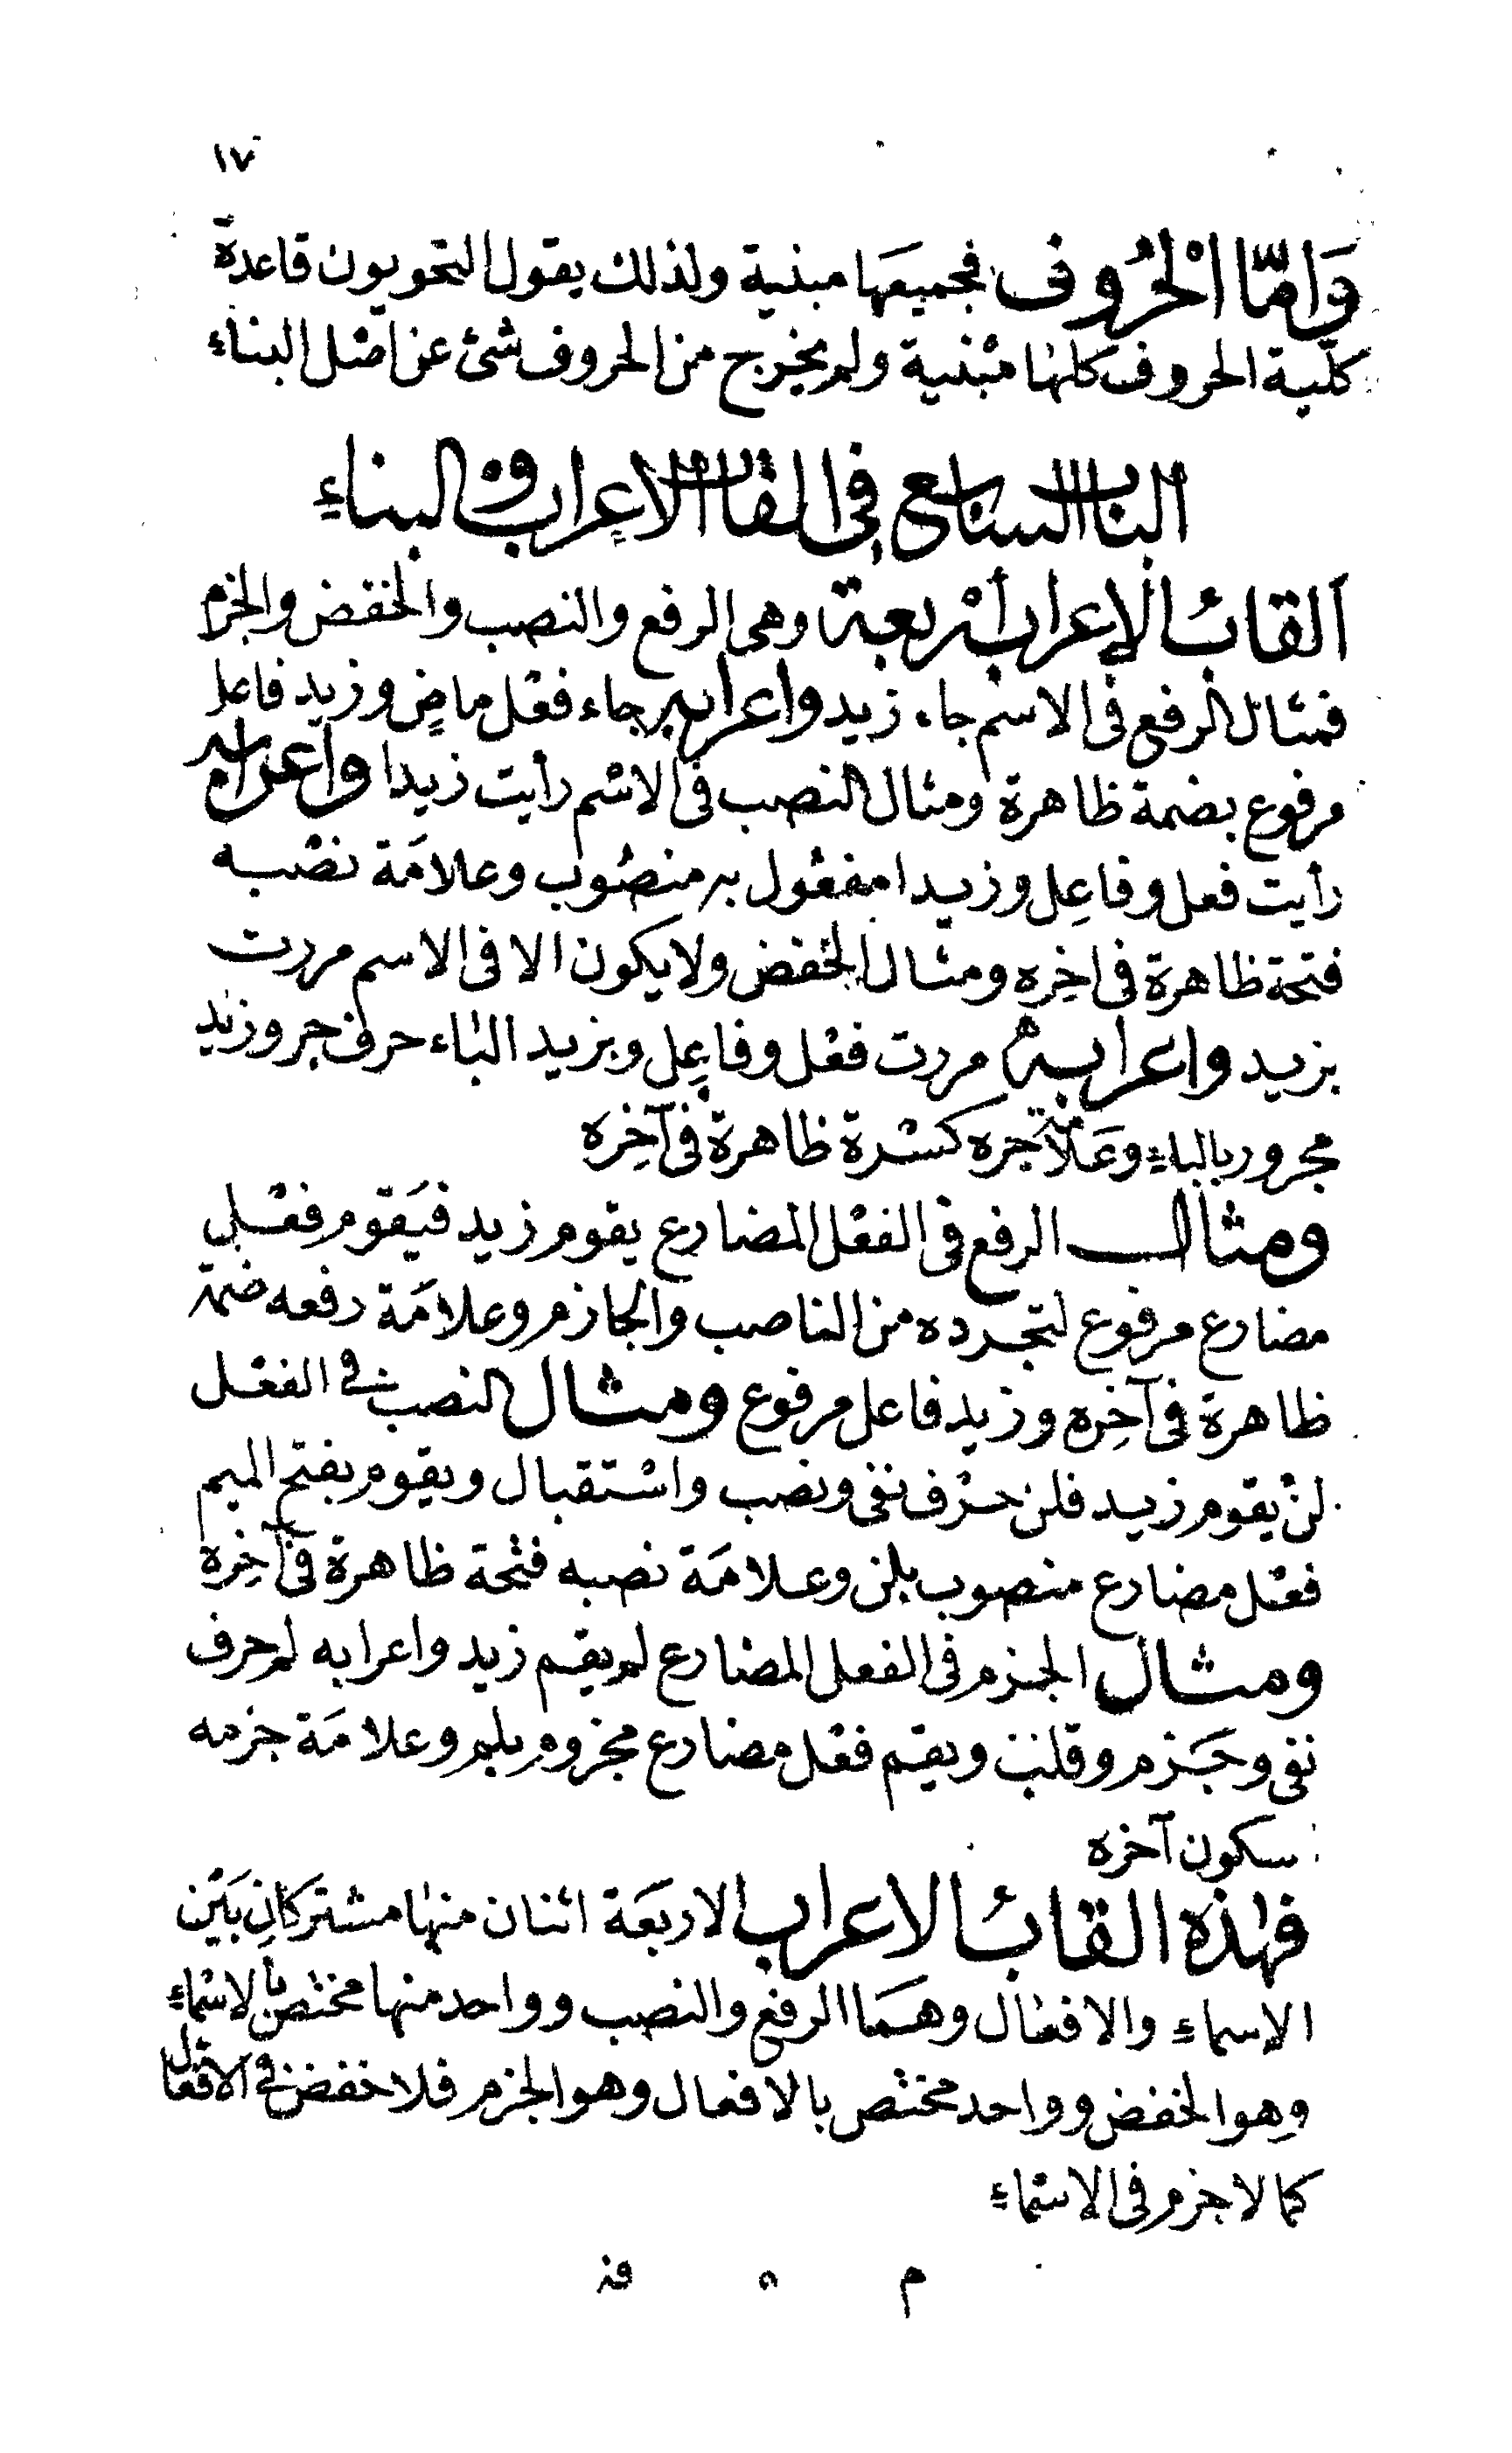 ١٧
وَامّا الْحُرُوف فجميعَها مبنية ولذلك يقول النحويون قاعدة
كلّية الحروف كلها مبْنية ولم يخرج من الحروف شئ عن اصْل البناءِ
الباب السابع فى القاب الاعراب والبناءِ
القابُ الإعراب أرْبعة وهى الرفع والنصب والخفض والجزم
فمثال الرفع فى الاسم جاء زيد واعرابه جاء فعْل ماضٍ وزيد فاعل
مرفوع بضمة ظاهرة ومثال النصب فى الاسْم رأيت زيدا واعرابه
رأيت فعل وفاعِل وزيدا مفعُول به منصُوب وعلامَة نصْبه
فتحة ظاهرة فى اخِرِه ومثال الخفض ولا يكون الا فى الاسم مررت
بزيد واعرابهُ مررت فعْل وفاعِل وبزيد الباء حرف جر وزيد
مجرور بالباءِ وعَلامَة جره كسْرة ظاهرة فى آخِرِه
ومثال الرفع فى الفعْل المضارع يقوم زيد فيَقوم فعْل
مضارع مرفوع لتجرده من الناصب والجازم وعلامَة رفعه ضمة
ظاهرة فى آخِرِه وزيد فاعل مرفوع ومثال النصب فى الفعْل
لنْ يقوم زيد فلن حرْف نفى ونصب واسْتقبال ويقوم بفتح الميم
فعْل مضارع منصوب بلن وعلامَة نصبه فتْحة ظاهرة فى آخِرِه
ومثال الجزم فى الفعل المضارع لم يقم زيد واعرابه لم حرف
نفى وجَزم وقلب ويقم فعْل مضارع مجزوم بلم وعلامَة جزمه
سكون آخره
فهٰذه القابُ الاعراب الاربَعَة اثنان منها مشتركانِ بَيْن
الاسماءِ والافعال وهمَا الرفع والنصب وواحد منها مختص بالاسْماءِ
وهو الخفض وواحد مختص بالافعال وهو الجزم فلا خفض فى الافعال
كما لا جزم فى الاسْماءِ
م ٥ فذ